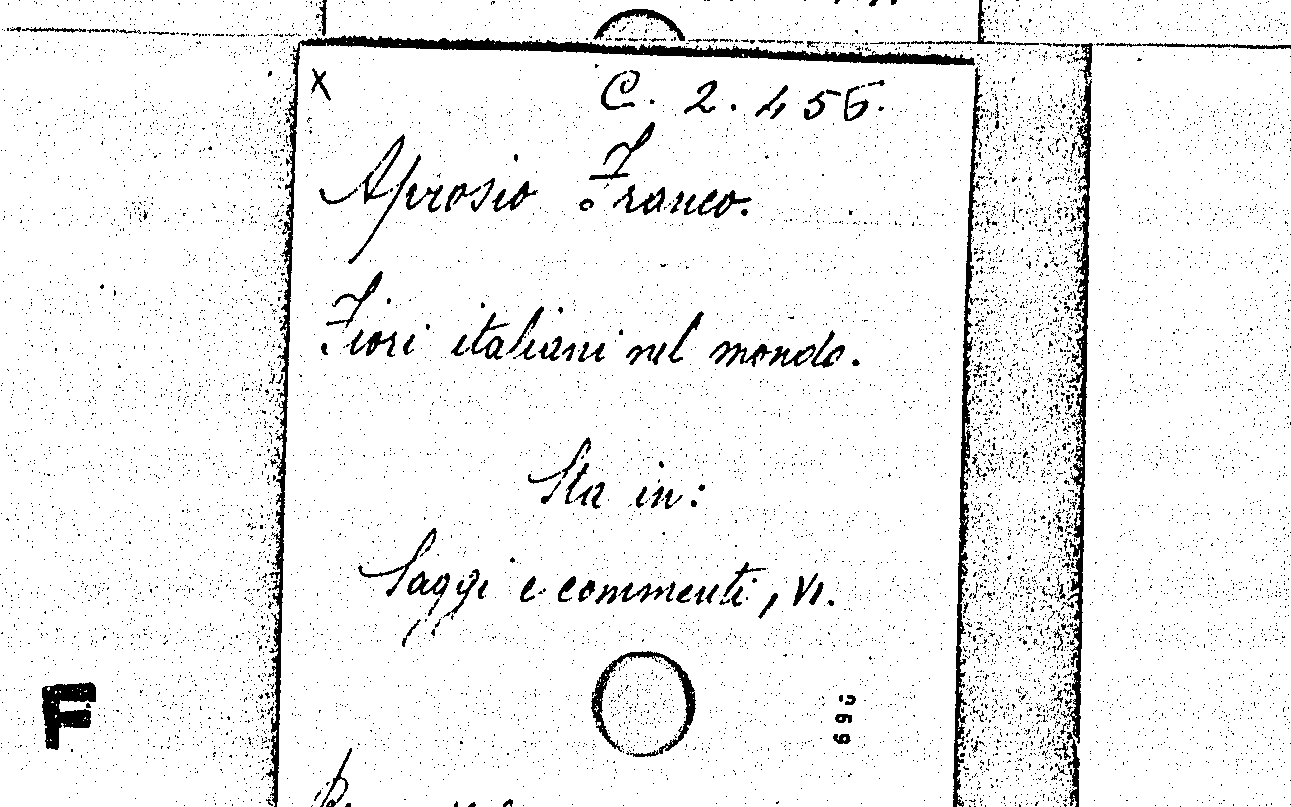 X
C. 2. 455.
Aprosio Franco.
Fiori italiani nel mondo.
Sta in:
Saggi e commenti, VI.
F